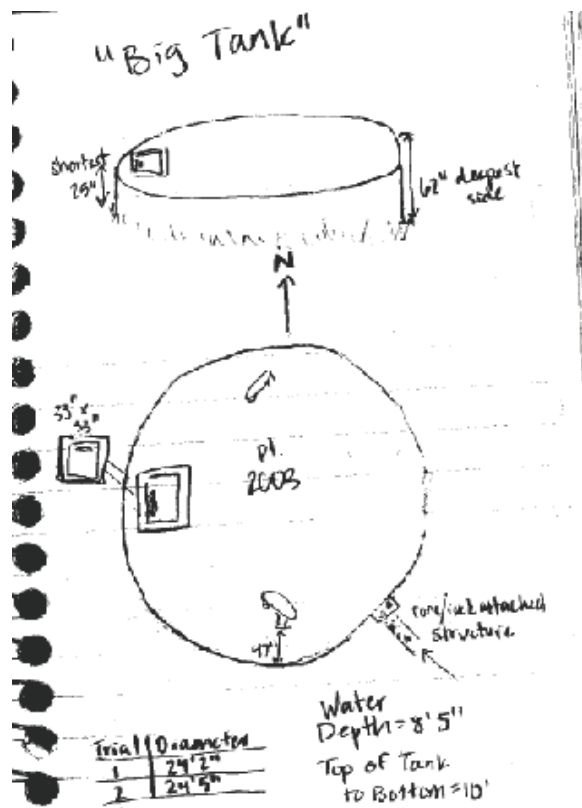 "Big Tank"
shortest
25"
62" deepest
side
N
33" x
33"
pt.
2003
47"
structure
Water
Depth = 8'5"
Top of Tank
to Bottom = 10'
Trial Diameter
1 24'2"
2 24'5"